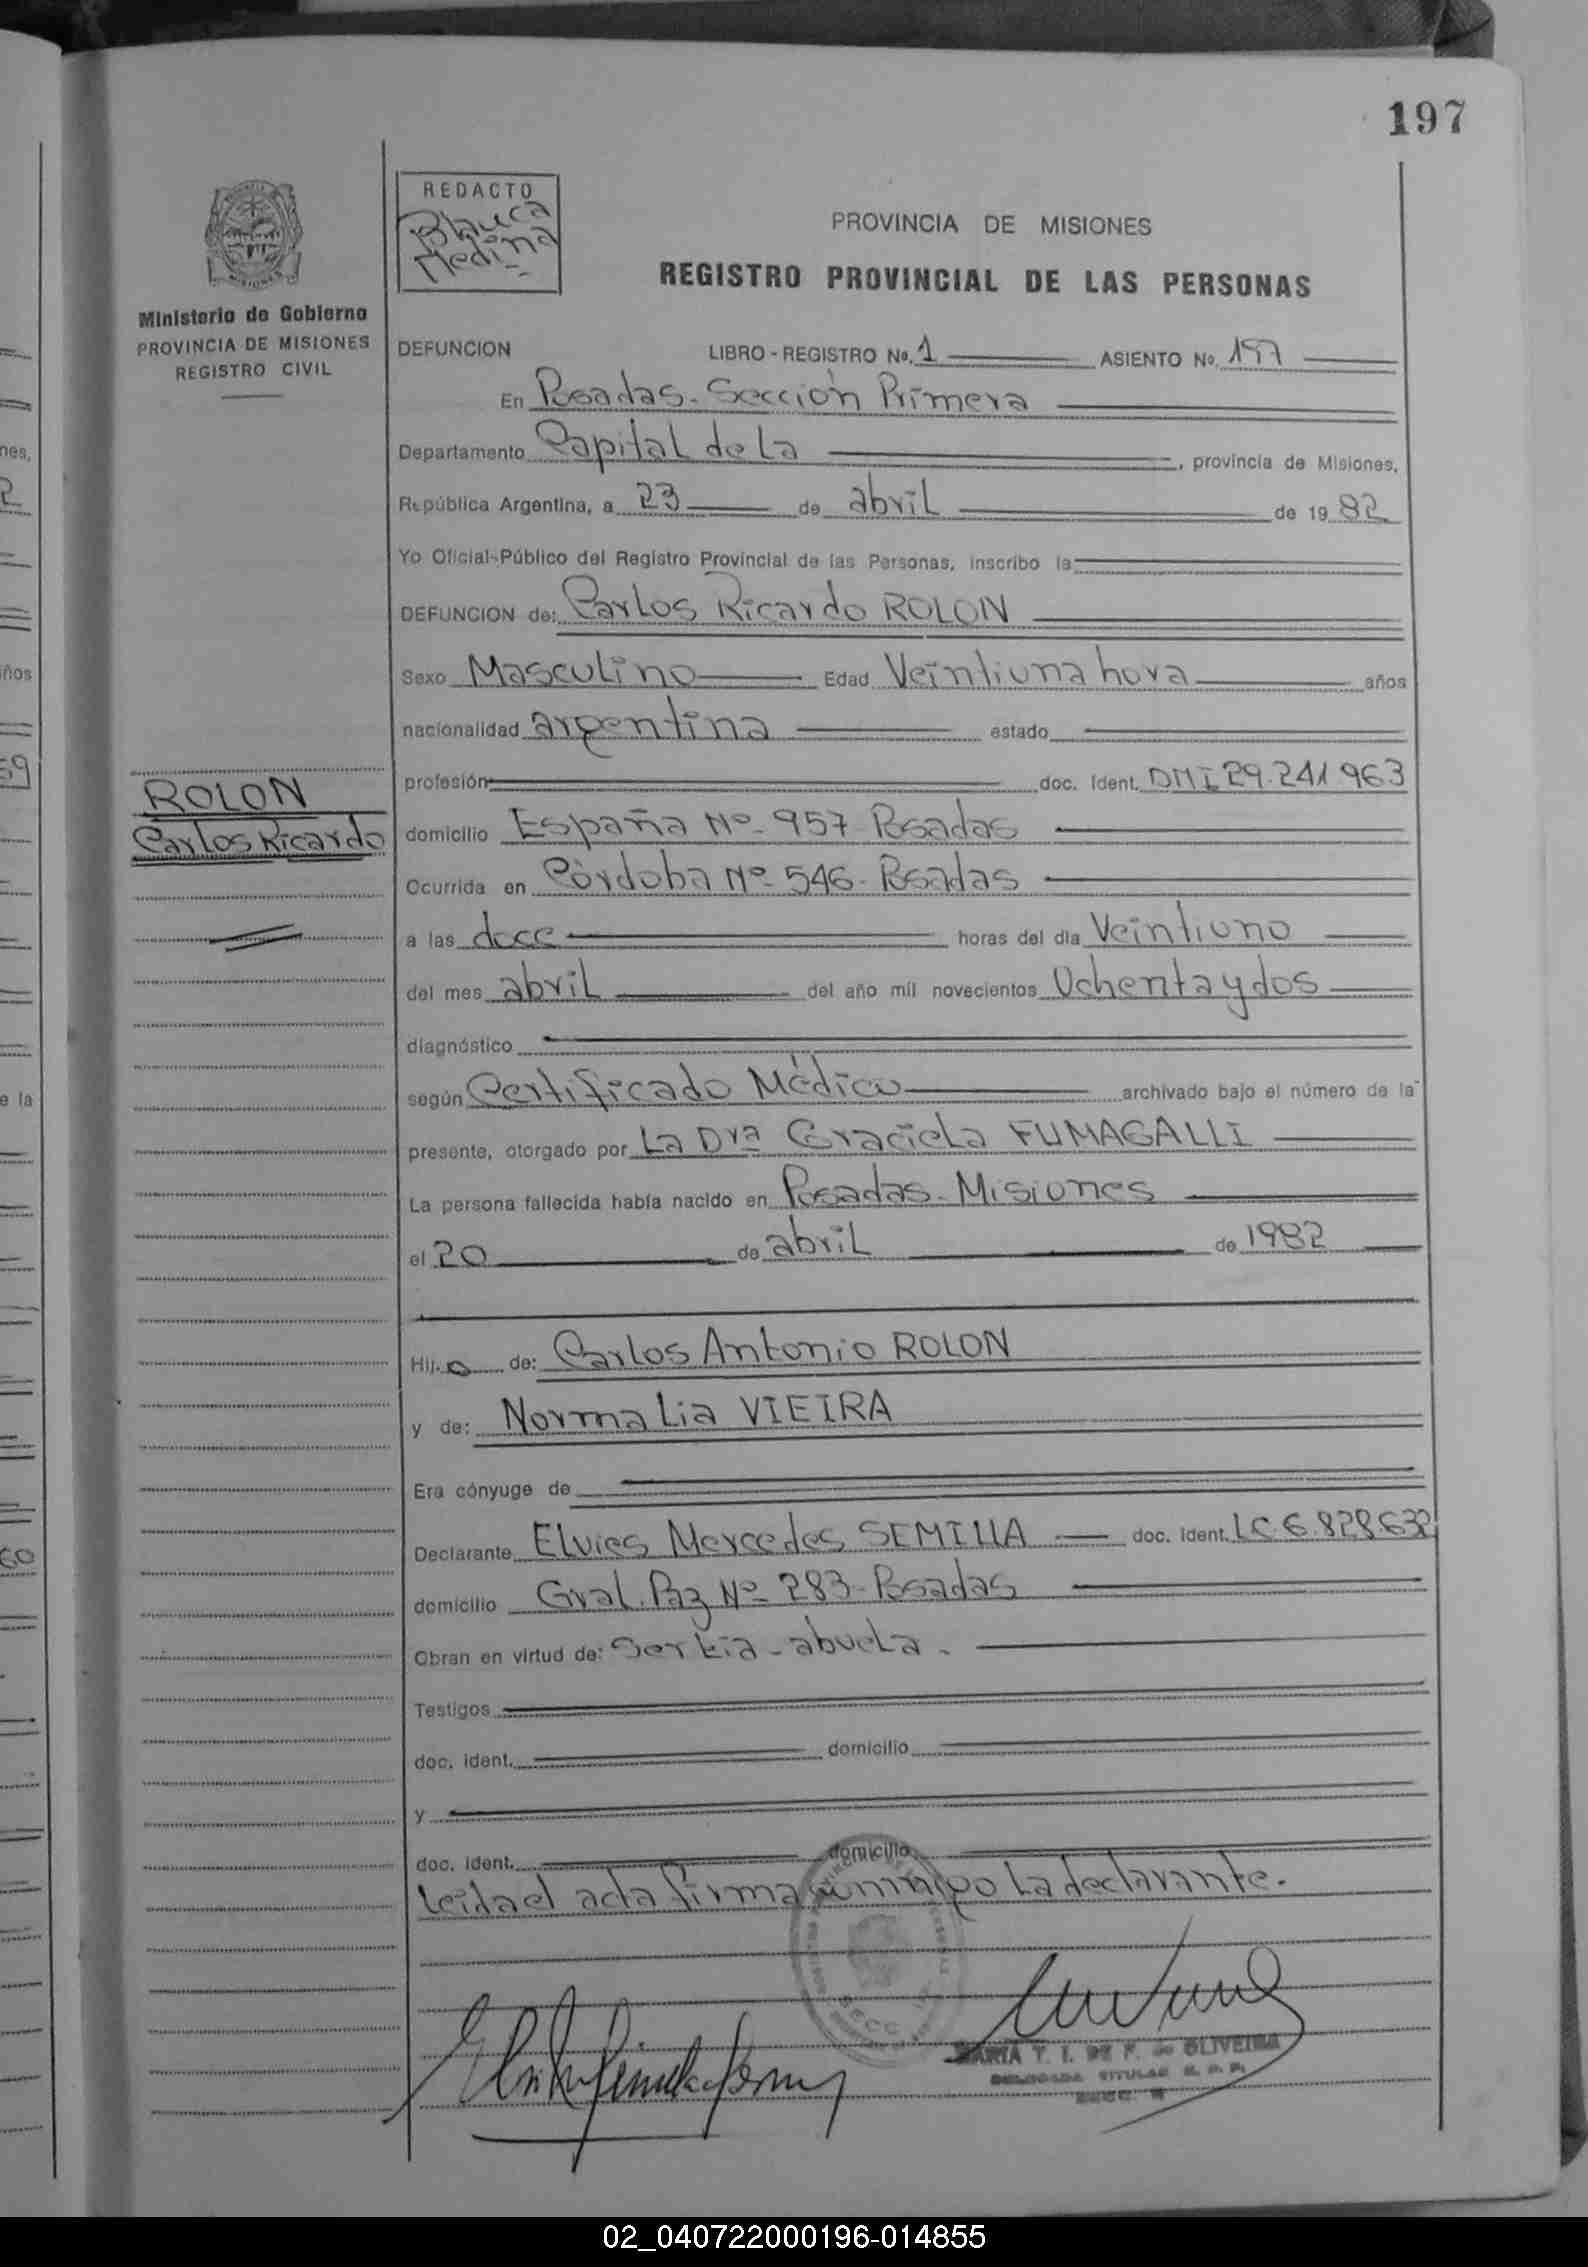 197
REDACTO
Blanca
Medina
PROVINCIA DE MISIONES
REGISTRO PROVINCIAL DE LAS PERSONAS
MISIONES
Ministerio de Gobierno
PROVINCIA DE MISIONES
REGISTRO CIVIL
DEFUNCION LIBRO - REGISTRO No. 1 ASIENTO No. 197
En Posadas. Sección Primera
Departamento Capital de La, provincia de Misiones,
República Argentina, a 23 de abril de 1982
Yo Oficial-Público del Registro Provincial de las Personas, inscribo la
DEFUNCION de: Carlos Ricardo ROLON
Sexo Masculino Edad Veintiuna hora años
nacionalidad argentina estado
profesión doc. ident. DNI 29.241963
ROLON
Carlos Ricardo
domicilio España Nº 957 Posadas
Ocurrida en Córdoba Nº 546. Posadas
a las doce horas del día Veintiuno
del mes abril del año mil novecientos Ochenta y dos
diagnóstico
según Certificado Médico archivado bajo el número de la
presente, otorgado por La Dra Graciela FUMAGALLI
La persona fallecida había nacido en Posadas. Misiones
el 20 de abril de 1982
Hij.o de: Carlos Antonio ROLON
y de: Norma Lia VIEIRA
Era cónyuge de
Declarante Elvies Mercedes SEMILLA doc. ident. LC 6.828.632
domicilio Gral. Paz Nº 283. Posadas
Obran en virtud de: Ser tía - abuela.
Testigos
doc. ident. domicilio
y
doc. ident. domicilio
Leida el acta firma conmigo La declarante.
SECC.
MARIA T. I. DE F. de OLIVEIRA
DELEGADA TITULAR R. P. P.
SECC.
02_040722000196-014855